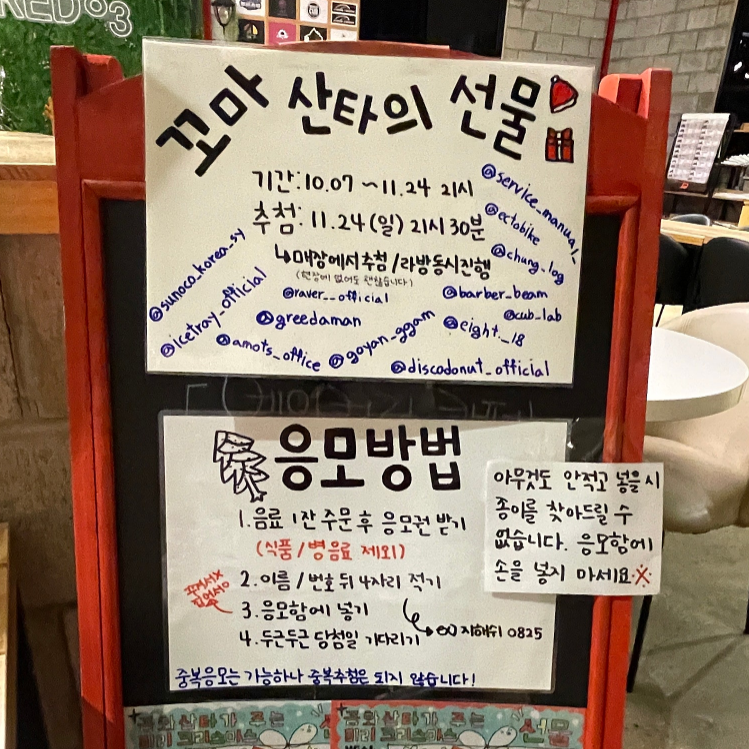 꼬마 산타의 선물
기간: 10.07 ~ 11.24 21시
추첨: 11.24 (일) 21시 30분
↳ 매장에서 추첨 / 라방동시진행
(현장에 없어도 괜찮습니다)
@service_manual_
@ectobike
@chung_log
@sunoco_korea_sy
@icetray_official
@raver__official
@barber_beam
@greedaman
@cub_lab
@eight._.18
@amots_office
@goyan_ggam
@discodonut_official
응모방법
1. 음료 1잔 주문 후 응모권 받기
(식품/병음료 제외)
2. 이름 / 번호 뒤 4자리 적기
3. 응모함에 넣기
4. 두근두근 당첨일 기다리기
0825
중복응모는 가능하나 중복추첨은 되지 않습니다!
아무것도 안적고 넣을 시
종이를 찾아드릴 수
없습니다. 응모함에
손을 넣지 마세요※
산타가 주는
선물
산타가 주는
선물